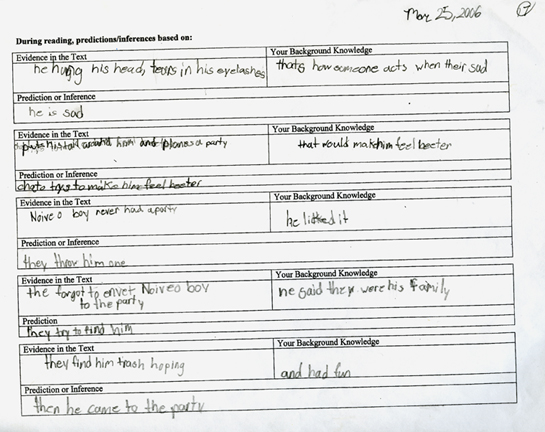 Mar 25, 2006
During reading, predictions/inferences based on:
Evidence in the Text Your Background Knowledge
he hung his head, tears in his eyelashes thats how someone acts when their sad
Prediction or Inference
he is sad
Evidence in the Text Your Background Knowledge
puts his tail around him and planes a party that would mak him feel beeter
Prediction or Inference
chato trys to make him feel beeter
Evidence in the Text Your Background Knowledge
Noive o boy never had a party he litked it
Prediction or Inference
they throw him one
Evidence in the Text Your Background Knowledge
the forgot to envet Noiveo boy he said they were his family
to the party
Prediction
they try to find him
Evidence in the Text Your Background Knowledge
they find him trash hoping and had fun
Prediction or Inference
then he came to the party